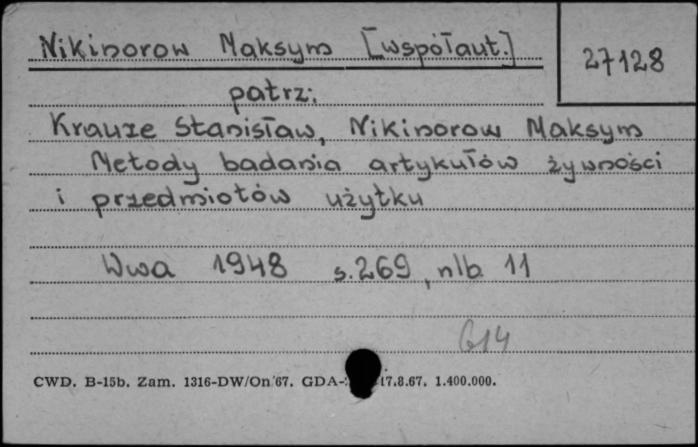 Nikinorow Maksym [współaut.]
27128
patrz:
Krauze Stanisław, Nikinorow Maksym
Metody badania artykułów żywności
i przedmiotów użytku
Wwa 1948 s.269, nlb. 11
614
CWD. B-15b. Zam. 1316-DW/On/67. GDA- 17.8.67. 1.400.000.